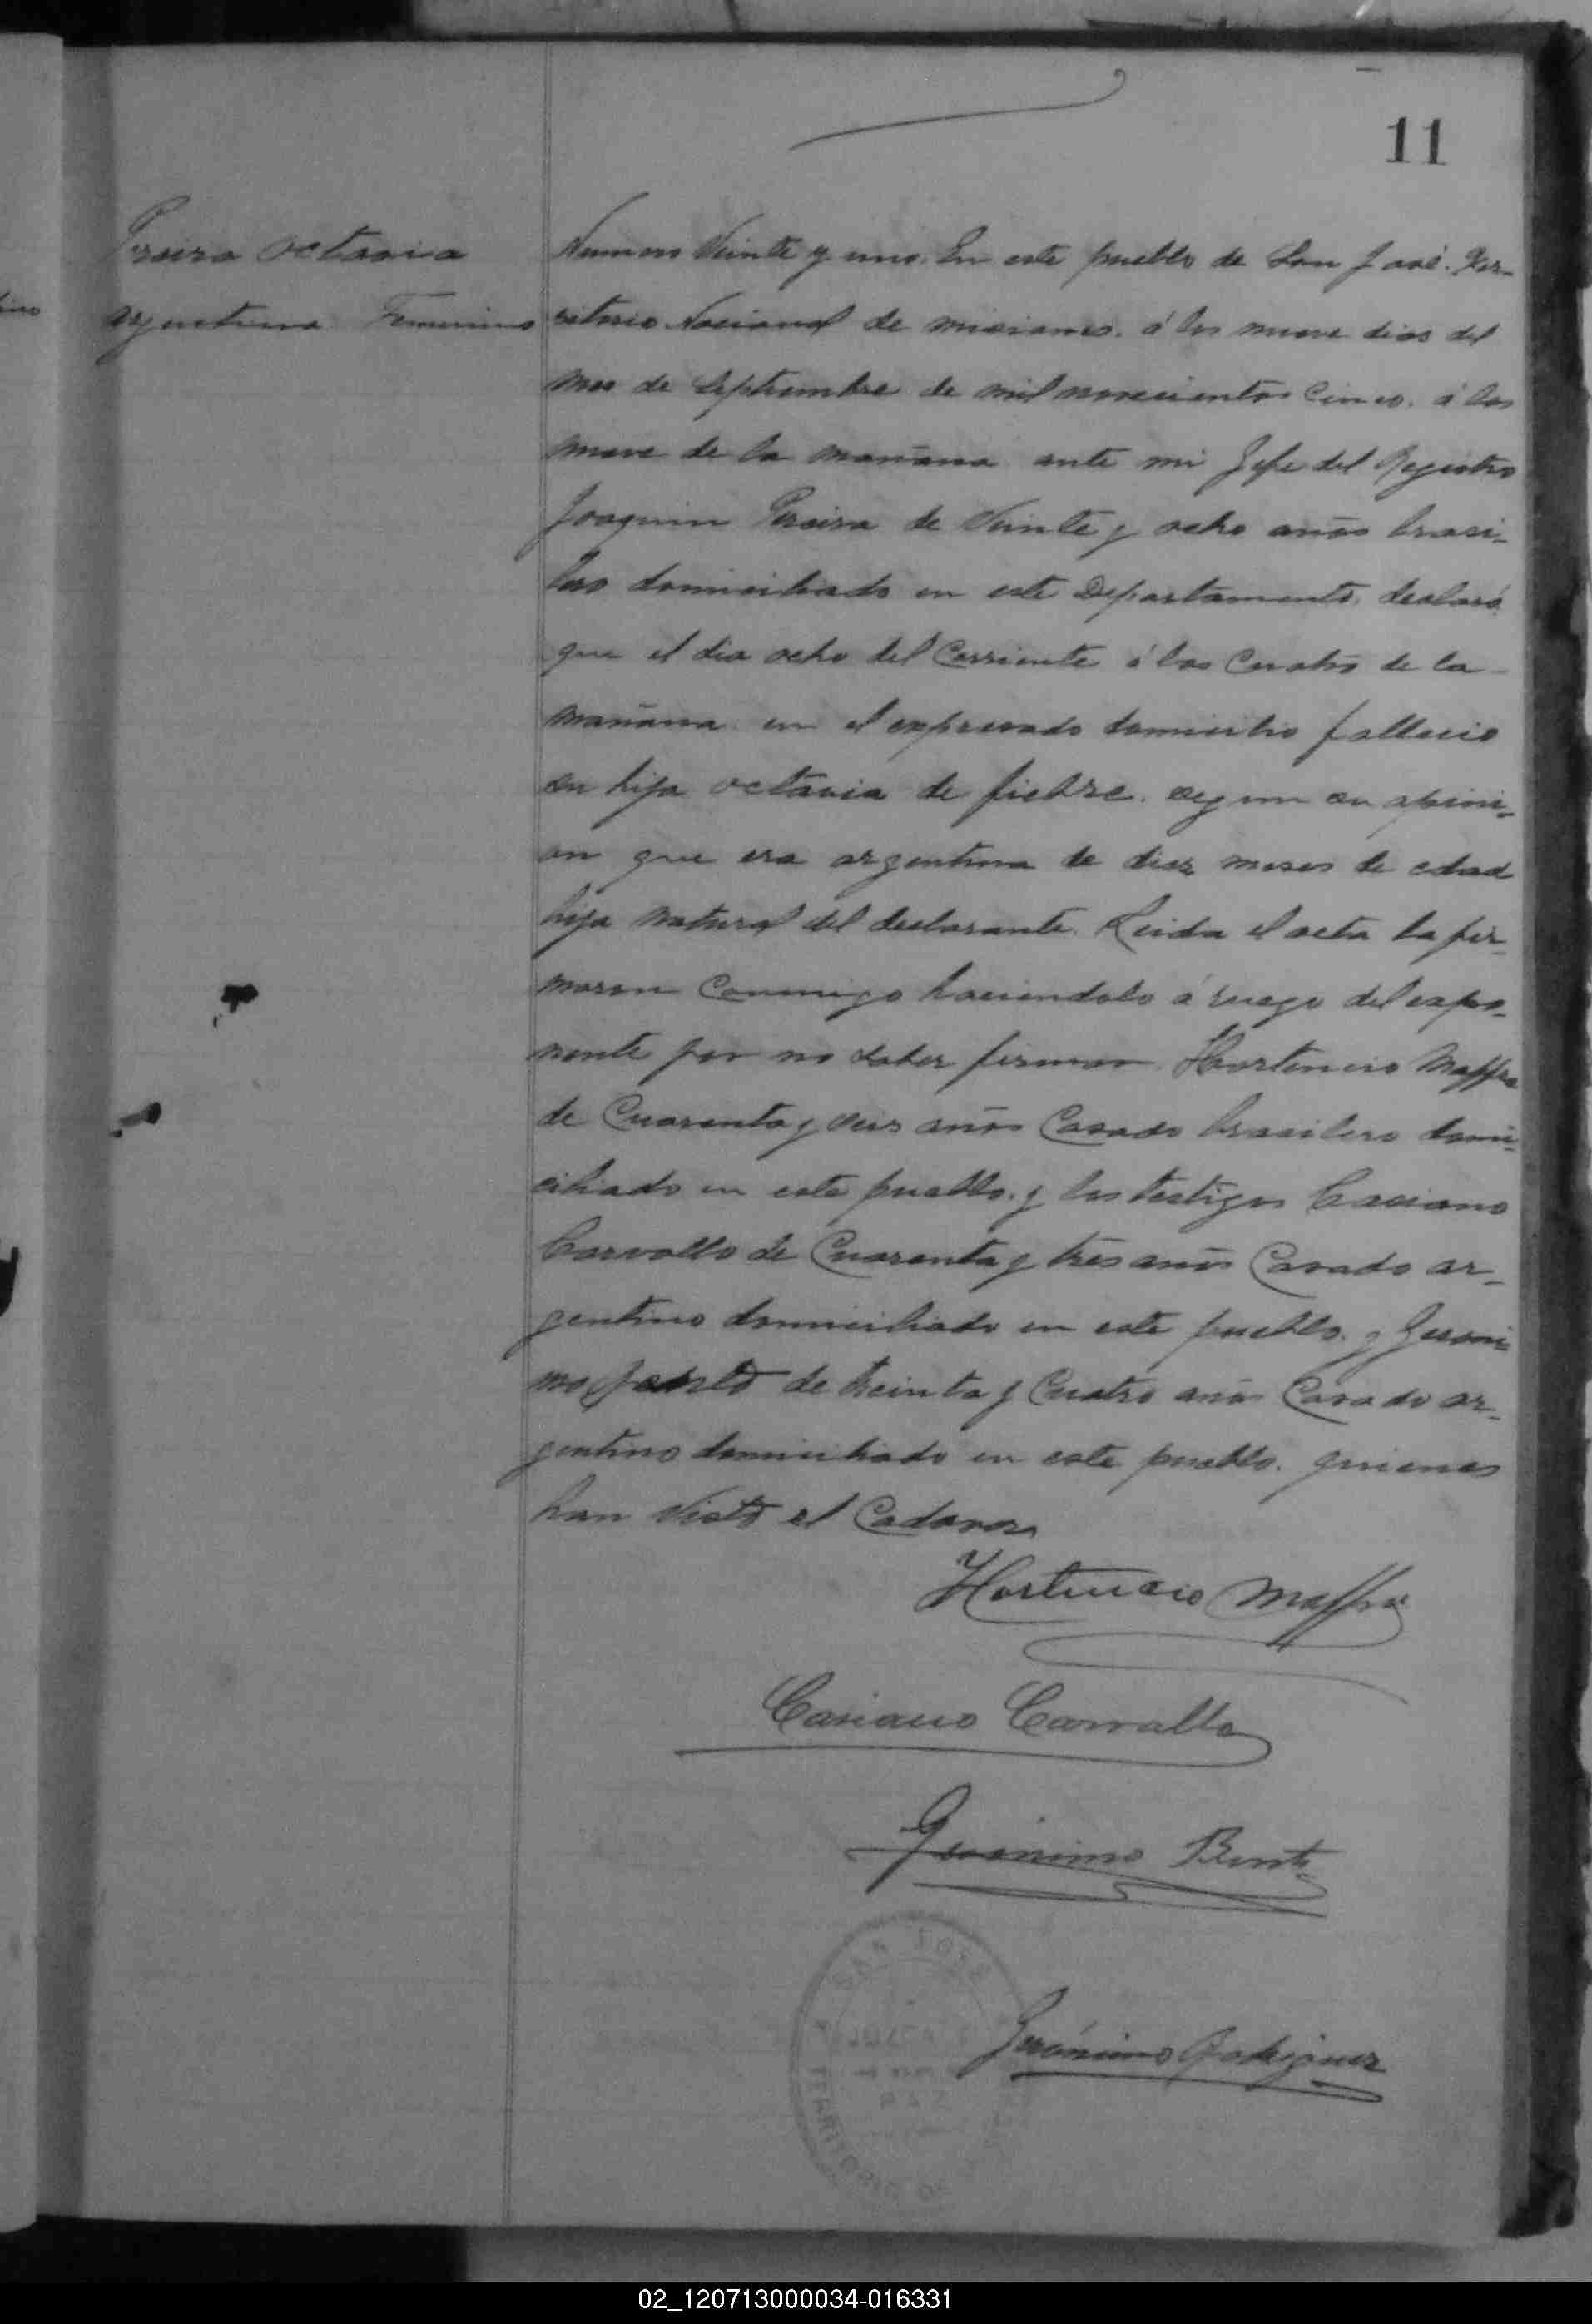 11
Pereira Octavia
Argentina Femenino
Numero Veinte y uno. En este pueblo de San José. Ter-
ritorio Nacional de Misiones. á los nueve dias del
mes de Septiembre de mil novecientos cinco. á las
nueve de la mañana ante mi Jefe del Registro
Joaquin Pereira de Veinte y ocho años brasi-
lero domiciliado en este Departamento, declaró
que el dia ocho del Corriente á las Cuatro de la
mañana en el expresado domicilio fallecio
su hija octavia de fiebre. segun su opini-
on que era argentina de diez meses de edad
hija natural del declarante. Leida el acta la fir-
maron Conmigo haciendolo á ruego del expo-
nente por no saber firmar. Hortencio Maffra
de Cuarenta y seis años Casado brasilero domi-
ciliado en este pueblo. y los testigos Casiano
Carvallo de Cuarenta y tres años Casado ar-
gentino domiciliado en este pueblo. y Geroni-
mo de treinta y Cuatro años Casado ar-
gentino domiciliado en este pueblo. quienes
han Visto el Cadaver
Hortencio Maffra
Casiano Carvallo
Geronimo
Gerónimo Rodriguez
SAN JOSE
02_120713000034-016331